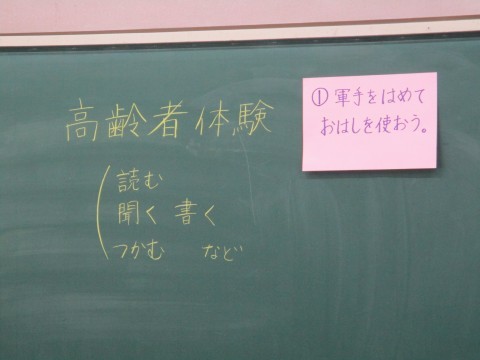 高齢者体験
読む
聞く 書く
つかむ など
①軍手をはめて
おはしを使おう。